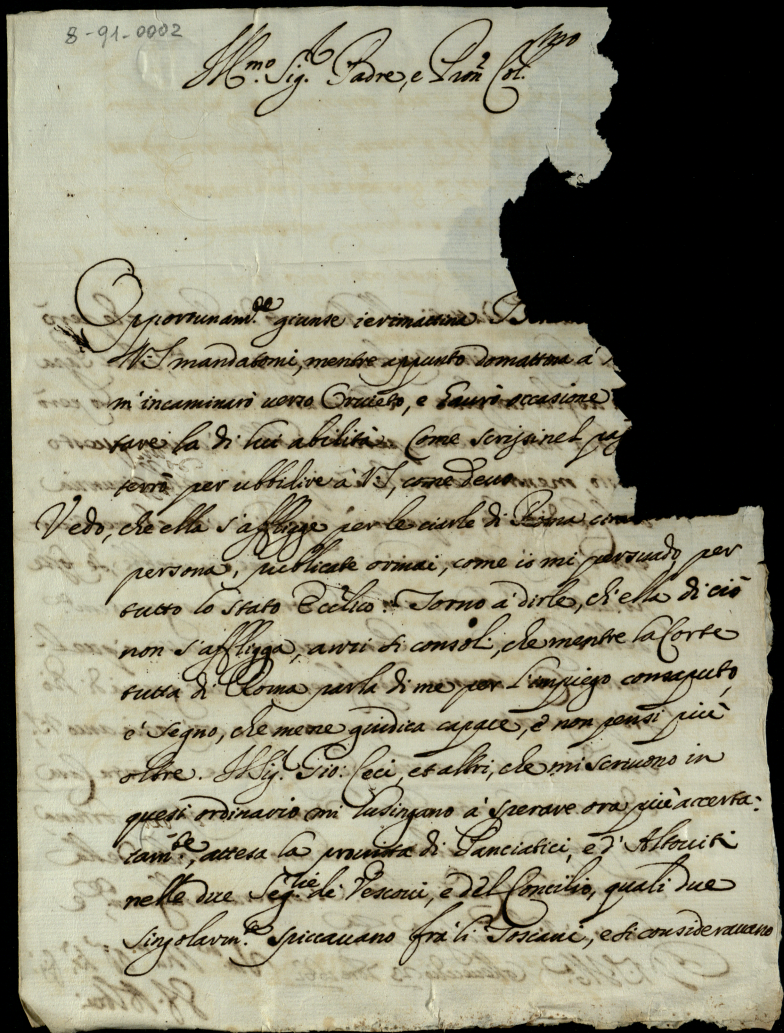 8-91-0002
Ill.mo Sig.r Padre, e Pron.e Col.mo
Opportunam.te giunse ierimattina
V.S. mandatomi, mentre appunto domattina à
m'incaminarò uerso Oruieto, e haurò occasione
tare la di lui abilità. Come scrissi nel pas
terrò per ubbidire à V.S., come deuo.
Vedo, che ella s'affligge per le ciarle di Roma circa
persona, publicate ormai, come io mi persuado, per
tutto lo Stato Eccl.ico. Torno à dirle, ch'ella di ciò
non s'affligga, anzi si consoli, che mentre la Corte
tutta di Roma parla di me per l'impiego consaputo,
è segno, che me ne giudica capace, e non pensi più
oltre. Il Sig.r Gio: Ceci, et altri, che mi scriuono in
quest'ordinario mi lusingano à sperare ora più accerta:
tam.te, attesa la prouista di Panciatici, e d'Altouiti
nelle due Seg.rie de Vescoui, e del Concilio, quali due
singolarm.te spiccauano frà li Toscani, e si considerauano